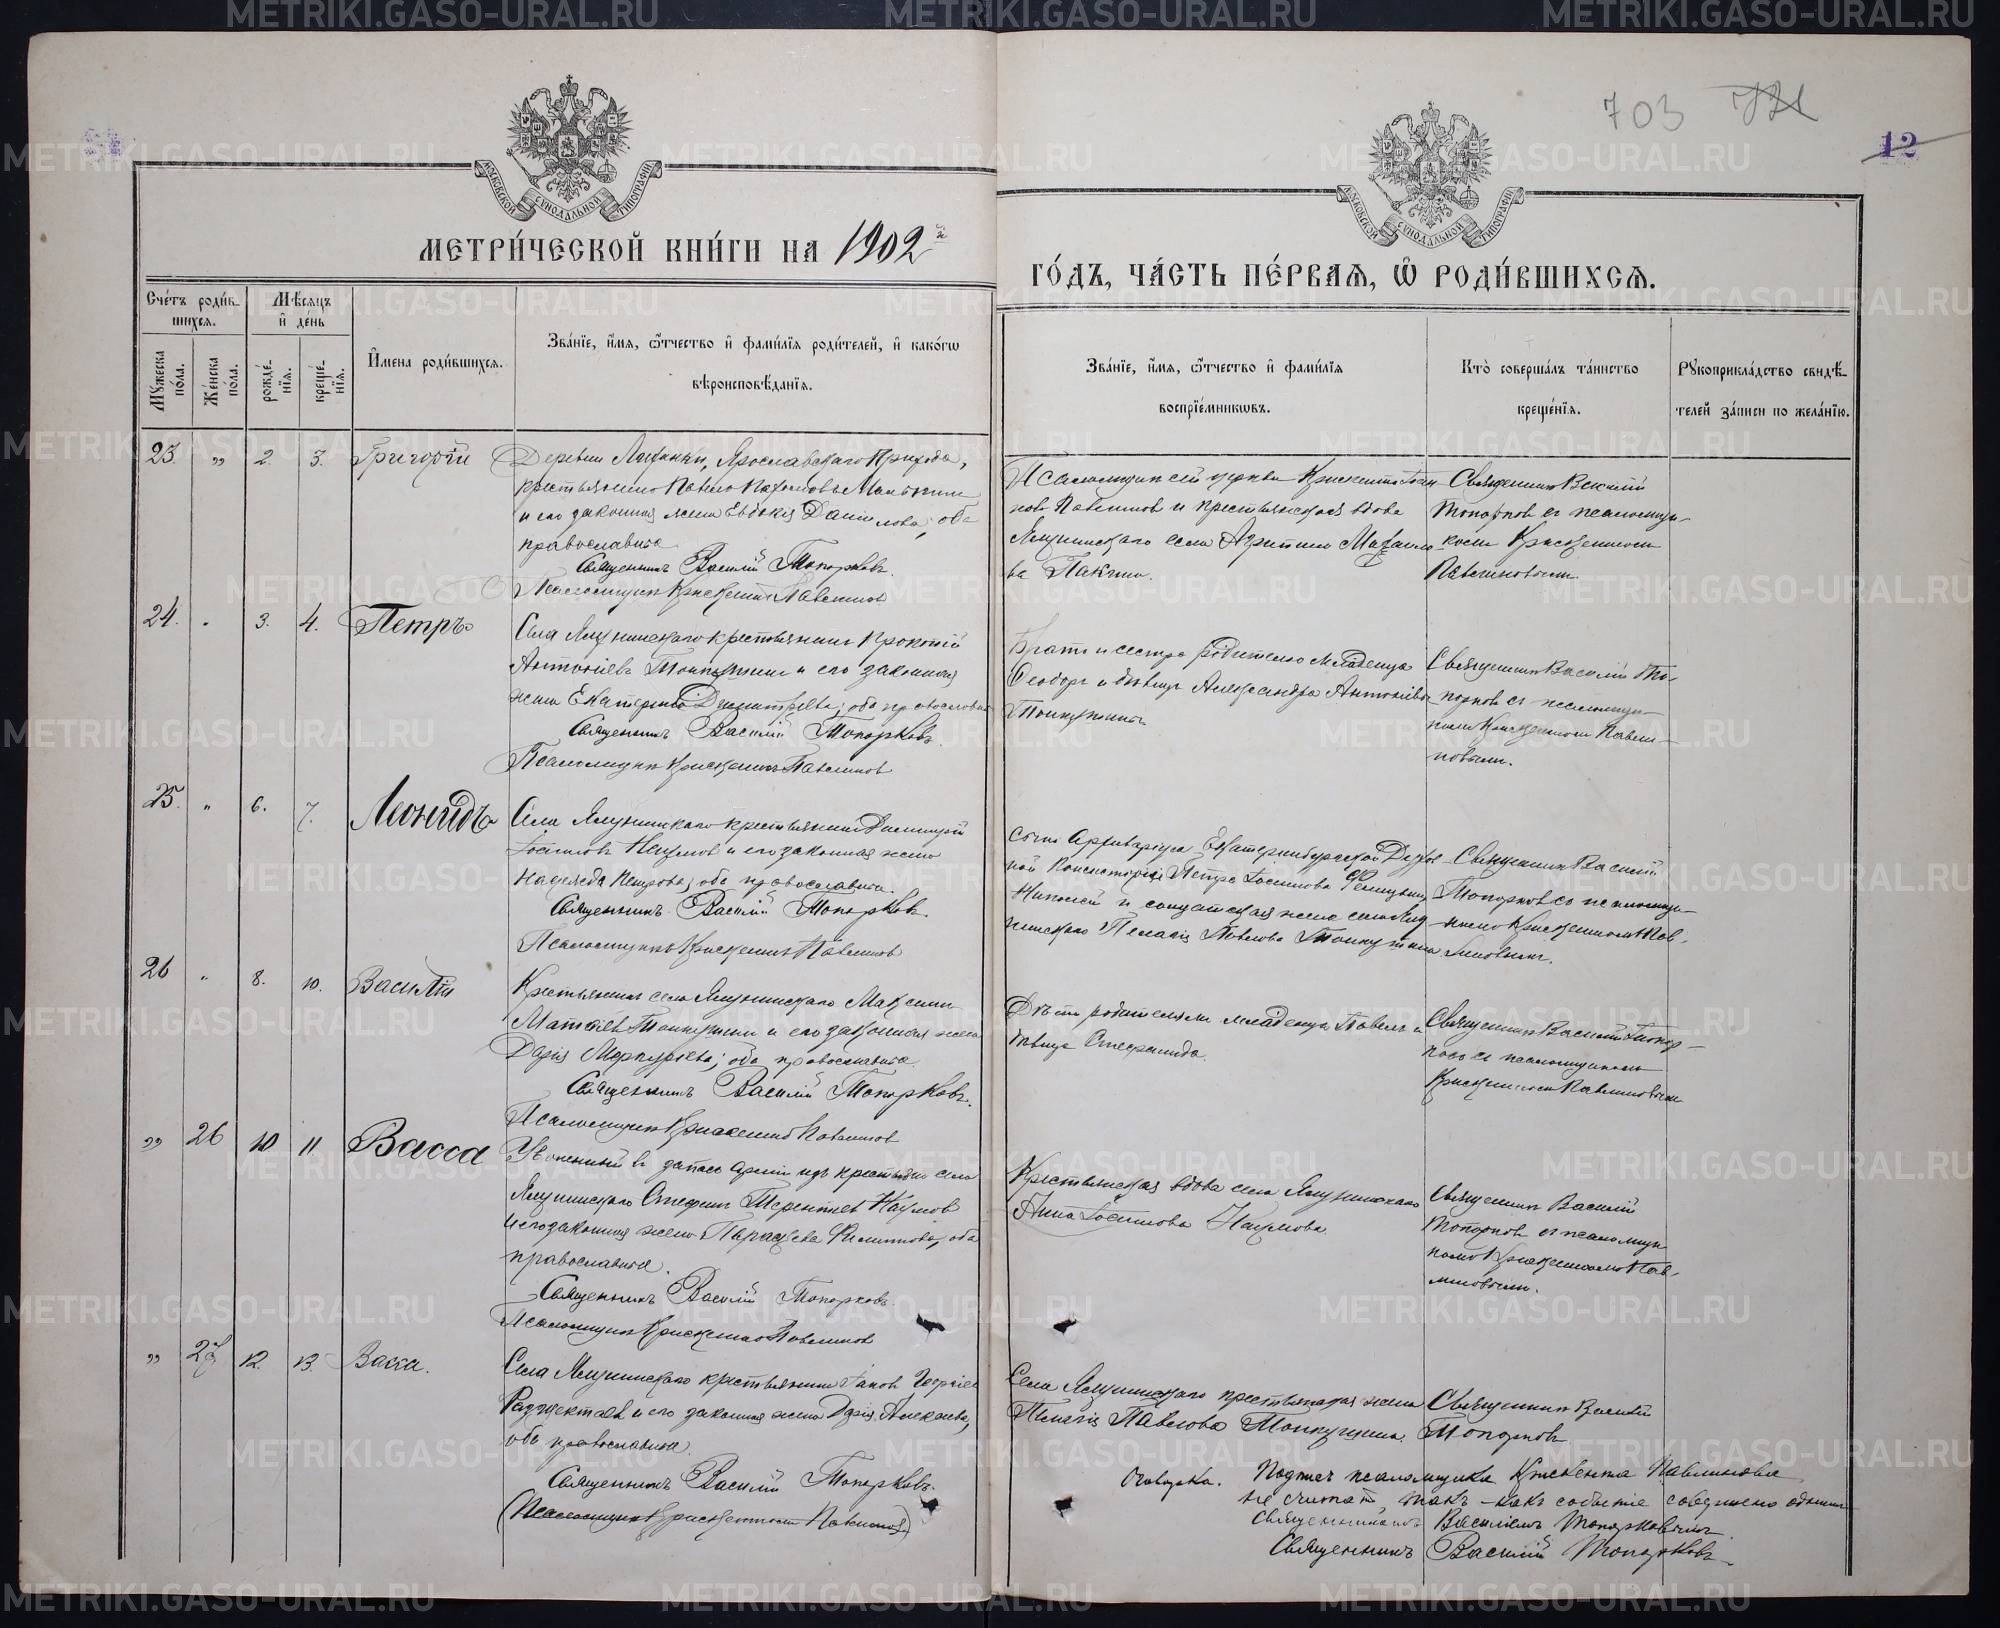 703
12
МОСКОВСКОЙ СѴНОДАЛЬНОЙ ТИПОГРАФІИ
МОСКОВСКОЙ СѴНОДАЛЬНОЙ ТИПОГРАФІИ
МЕТРИ́ЧЕСКОЙ КНИ́ГИ НА 1902й
ГО́ДЪ, ЧА́СТЬ ПЕ́РВАѦ, Ѿ РОДИ́ВШИХСѦ.
Сче́тъ роди́вшихсѧ.
Мѣ́сѧцъ и҆ де́нь
Му́жеска по́ла.
Же́нска по́ла.
рожде́нїѧ.
креще́нїѧ.
И҆мена роди́вшихсѧ.
Зва́нїе, и҆́мѧ, ѻ҆́тчество и҆ фами́лїѧ роди́телей, и҆ како́гѡ
вѣроисповѣ́данїѧ.
Зва́нїе, и҆́мѧ, ѻ҆́тчество и҆ фами́лїѧ
воспрїе́мникѡвъ.
Кто̀ соверша́лъ та́инство
креще́нїѧ.
Рꙋкоприкла́дство свидѣ́-
телей за́писи по жела́нїю.
23. „ 2. 3. Григорій
Деревни Ярославскаго Прихода,
крестьянинъ Павелъ Пахомовъ
и его законная жена Евдокія Данилова; оба
православные
Священникъ Василій Топорковъ.
Псаломщикъ Крискентъ Павлиновъ
Псаломщикъ сей церкви Крискентъ Іоан
новъ Павлиновъ и крестьянская вдова
села Агрипина Михаило
ва
Священникъ Василій
Топорковъ съ псаломщи-
комъ Крискентомъ
Павлиновымъ.
24. „ 3. 4. Петръ
Села крестьянинъ Прокопій
Антоніевъ и его законная
жена Екатерина Димитріева; оба православные
Священникъ Василій Топорковъ.
Псаломщикъ Крискентъ Павлиновъ
Братъ и сестра родителю младенца
Ѳеодоръ и дѣвица Александра Антоніевы
Священникъ Василій То-
порковъ съ псаломщи-
комъ Крискентомъ Павли-
новымъ.
25. „ 6. 7. Леонидъ
Села крестьянинъ Димитрій
Іосифовъ Наумовъ и его законная жена
Надежда Петрова; оба православные.
Священникъ Василій Топорковъ.
Псаломщикъ Крискентъ Павлиновъ
Сынъ Архиваріуса Екатеринбургской Духов
ной Консисторіи Петра Іосифова
Николай и солдатская жена села
Пелагія Павлова
Священникъ Василій
Топорковъ съ псаломщи-
комъ Крискентомъ Пав-
линовымъ.
26 „ 8. 10. Василій
Крестьянинъ села Максимъ
Матѳіевъ и его законная жена
Дарія Меркурьева; оба православные.
Священникъ Василій Топорковъ.
Псаломщикъ Крискентъ Павлиновъ
Дѣти родителями младенца Павелъ и
дѣвица Стефанида.
Священникъ Василій Топор-
ковъ съ псаломщикомъ
Крискентомъ Павлиновымъ
„ 26 10 11 Васса
Уволенный въ запасъ арміи изъ крестьянъ села
Стефанъ Терентіевъ Наумовъ
и его законная жена Параскева Филиппова, оба
православные.
Священникъ Василій Топорковъ.
Псаломщикъ Крискентъ Павлиновъ
Крестьянская вдова села
Анна Іосифова Наумова.
Священникъ Василій
Топорковъ съ псаломщи
комъ Крискентомъ Пав-
линовымъ.
„ 27 12. 13. Васса.
Села крестьянинъ Іаковъ Георгіевъ
и его законная жена Дарія Алексіева,
оба православные.
Священникъ Василій Топорковъ.
(Псаломщикъ Крискентъ Павлиновъ)
Села крестьянская жена
Пелагія Павлова
Священникъ Василій
Топорковъ
Оговорка. Подпись псаломщика Крискента Павлинова
не считать, такъ-какъ событіе совершено однимъ
священникомъ Василіемъ Топорковымъ.
Священникъ Василій Топорковъ
METRIKI.GASO-URAL.RU